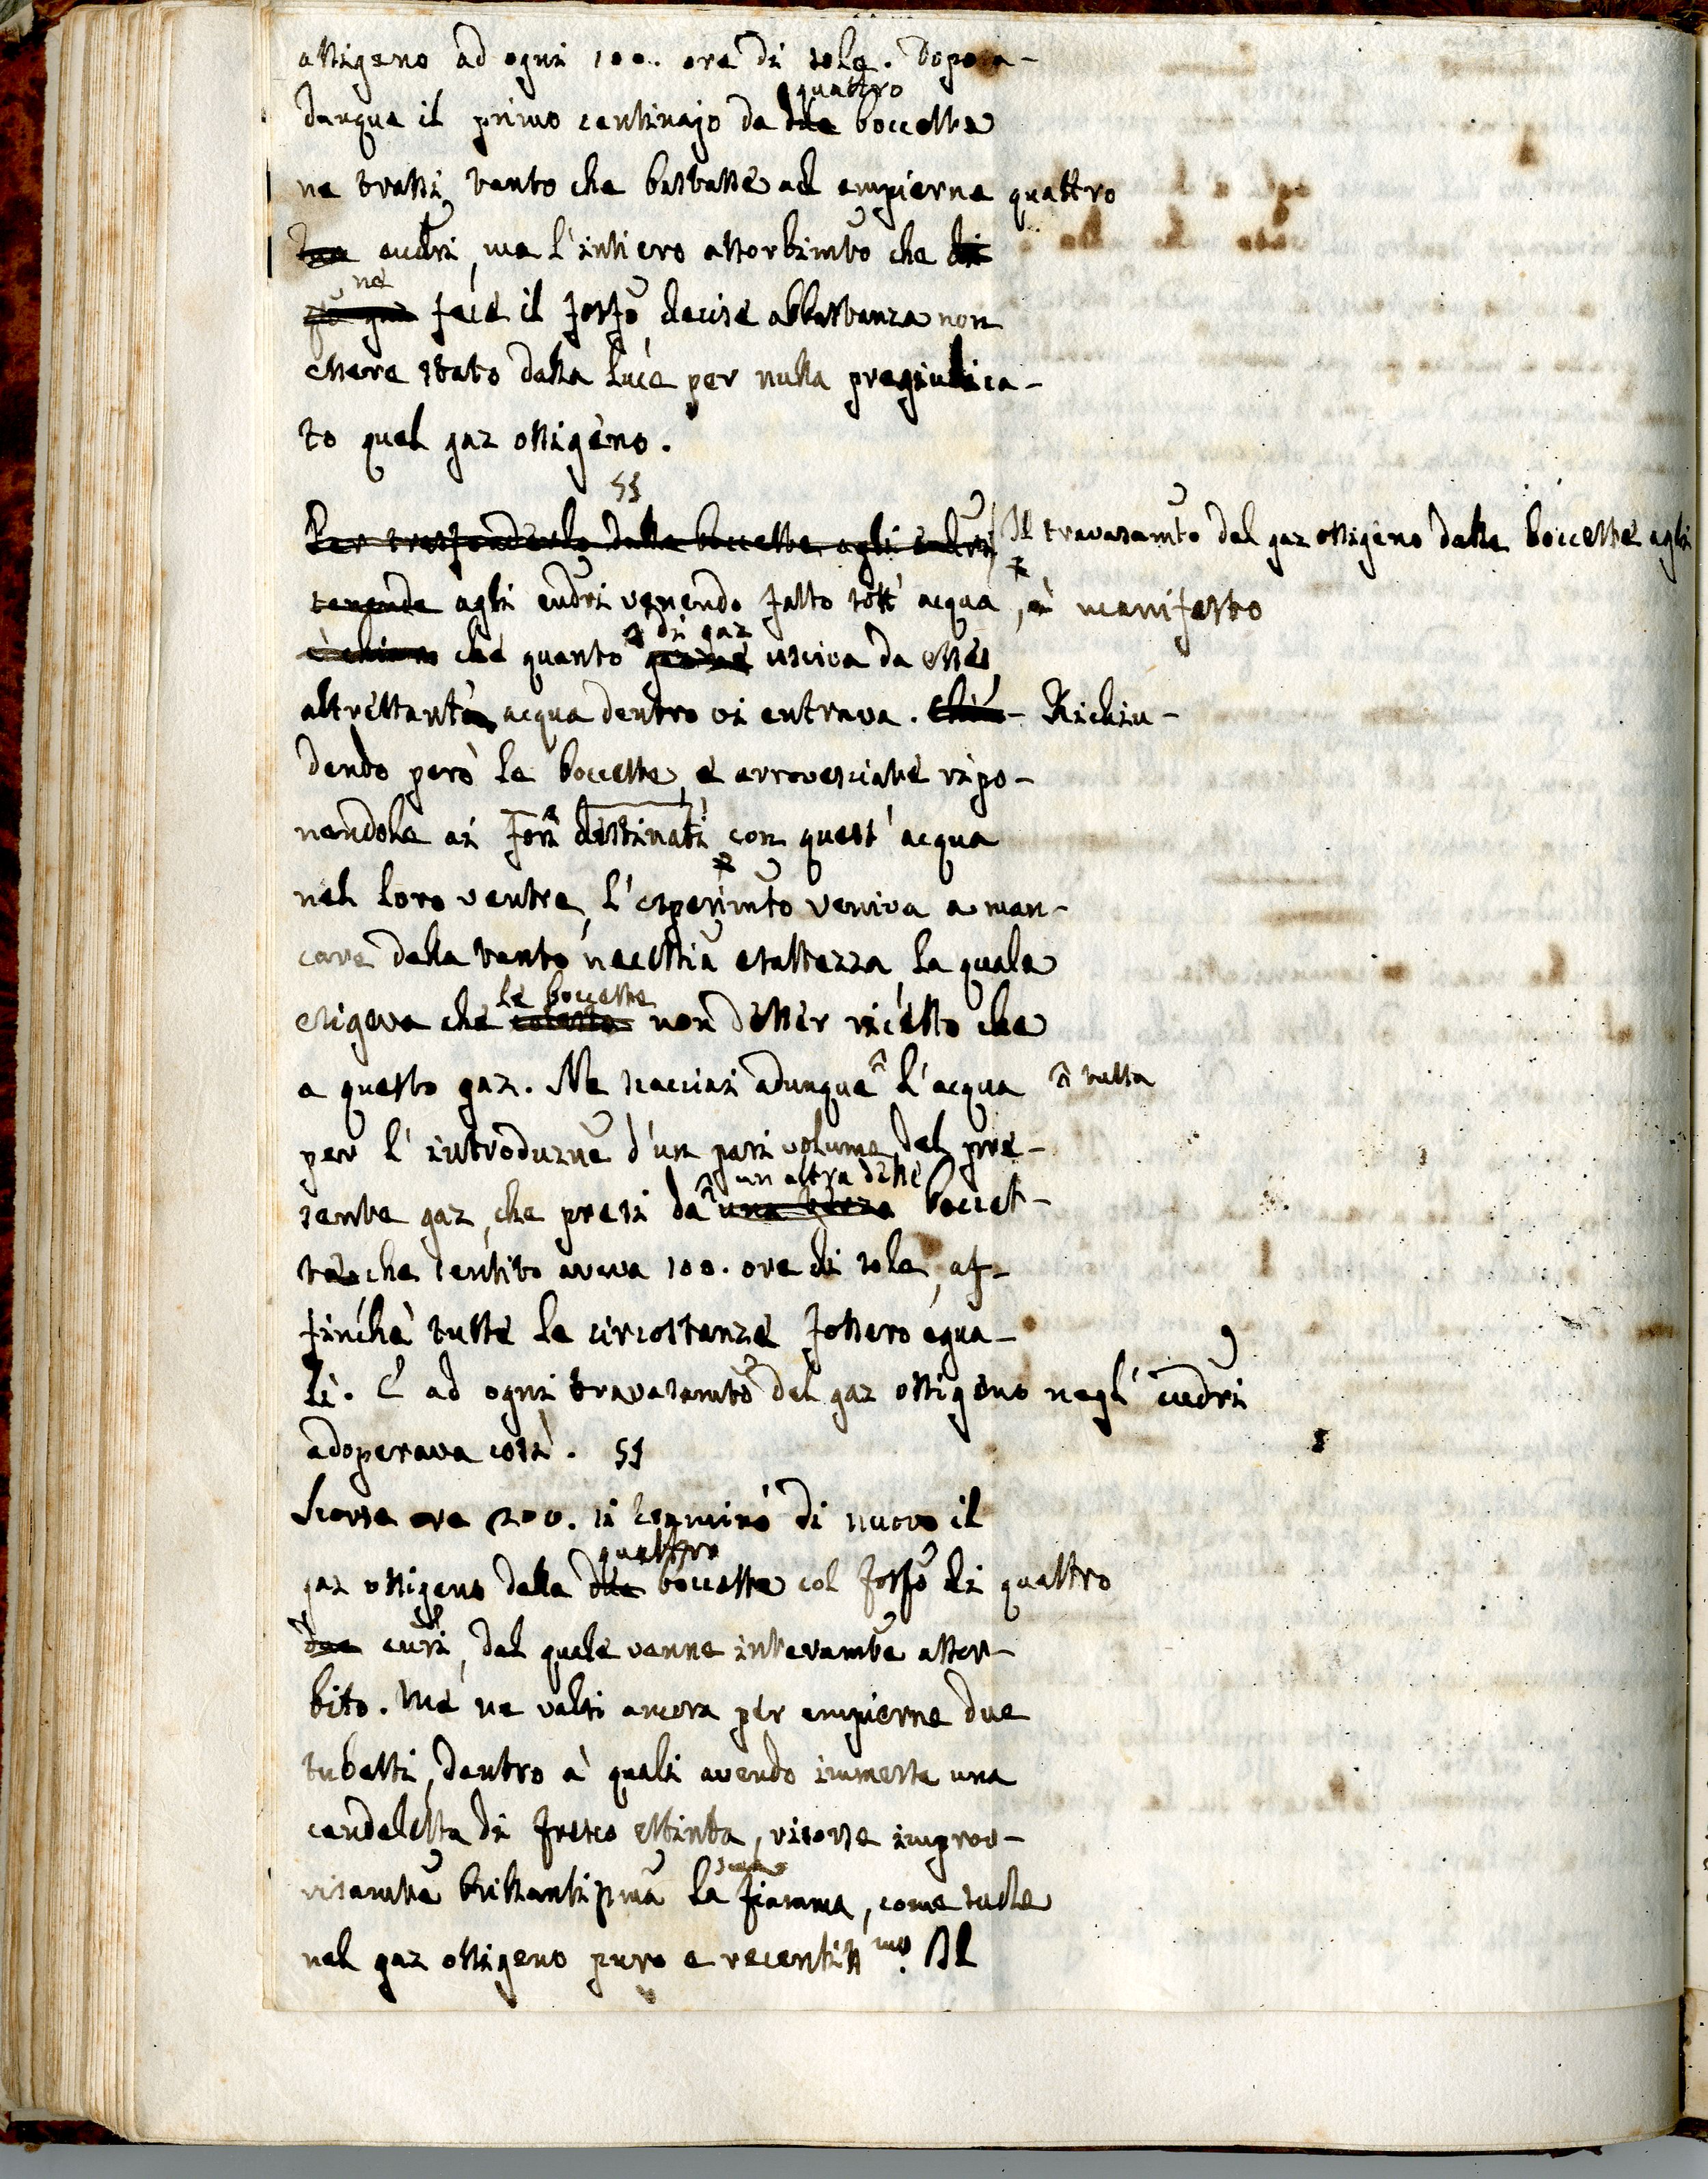 ossigeno ad ogni 100. ore di sole. Dopo a-
quattro
dunque il primo centinajo da due boccette
ne trassi tanto che bastasse ad empierne quattro
due eudri, ma l'intiero assorbimto che di
ne
fece il fosfo decise abbastanza non
essere stato dalla luce per nulla pregiudica-
to quel gaz ossigeno.
§§
Per trasfonderlo dalle boccette agli eudri Il travasamto del gaz ossigeno dalle boccette agli
agli eudri venendo fatto sott' acqua, è manifesto
di gaz
è chiaro che quanto usciva da esse,
altrettanta acqua dentro vi entrava. Chiu- Richiu-
dendo però le boccette, e arrovesciate ripo-
nendole ai fori destinati con quest' acqua
nel loro ventre, l'esperimto veniva a man-
care della tanto necessia esattezza la quale
le boccette
esigeva che coteste non desser ricetto che
a questo gaz. Ne scacciai adunque l'acqua tutta
per l'introduzne d'un pari volume del pre-
un altra delle
sente gaz, che presi da una terza boccet-
te, che sentito aveva 100. ore di sole, af-
finchè tutte le circostanze fossero egua-
li. E ad ogni travasamto del gaz ossigeno negli eudri
adoperava così. §§
Scorse ore 200. si esaminò di nuovo il
quattro
gaz ossigeno delle due boccette col fosfo di quattro
due eudri, dal quale venne interamte assor-
bito. Me ne valsi ancora per empierne due
tubetti, dentro a' quali avendo immersa una
candeletta di fresco estinta, risorse improv-
sua
visamte brillantissima la fiamma, come suole
nel gaz ossigeno puro e recentissmo. Al